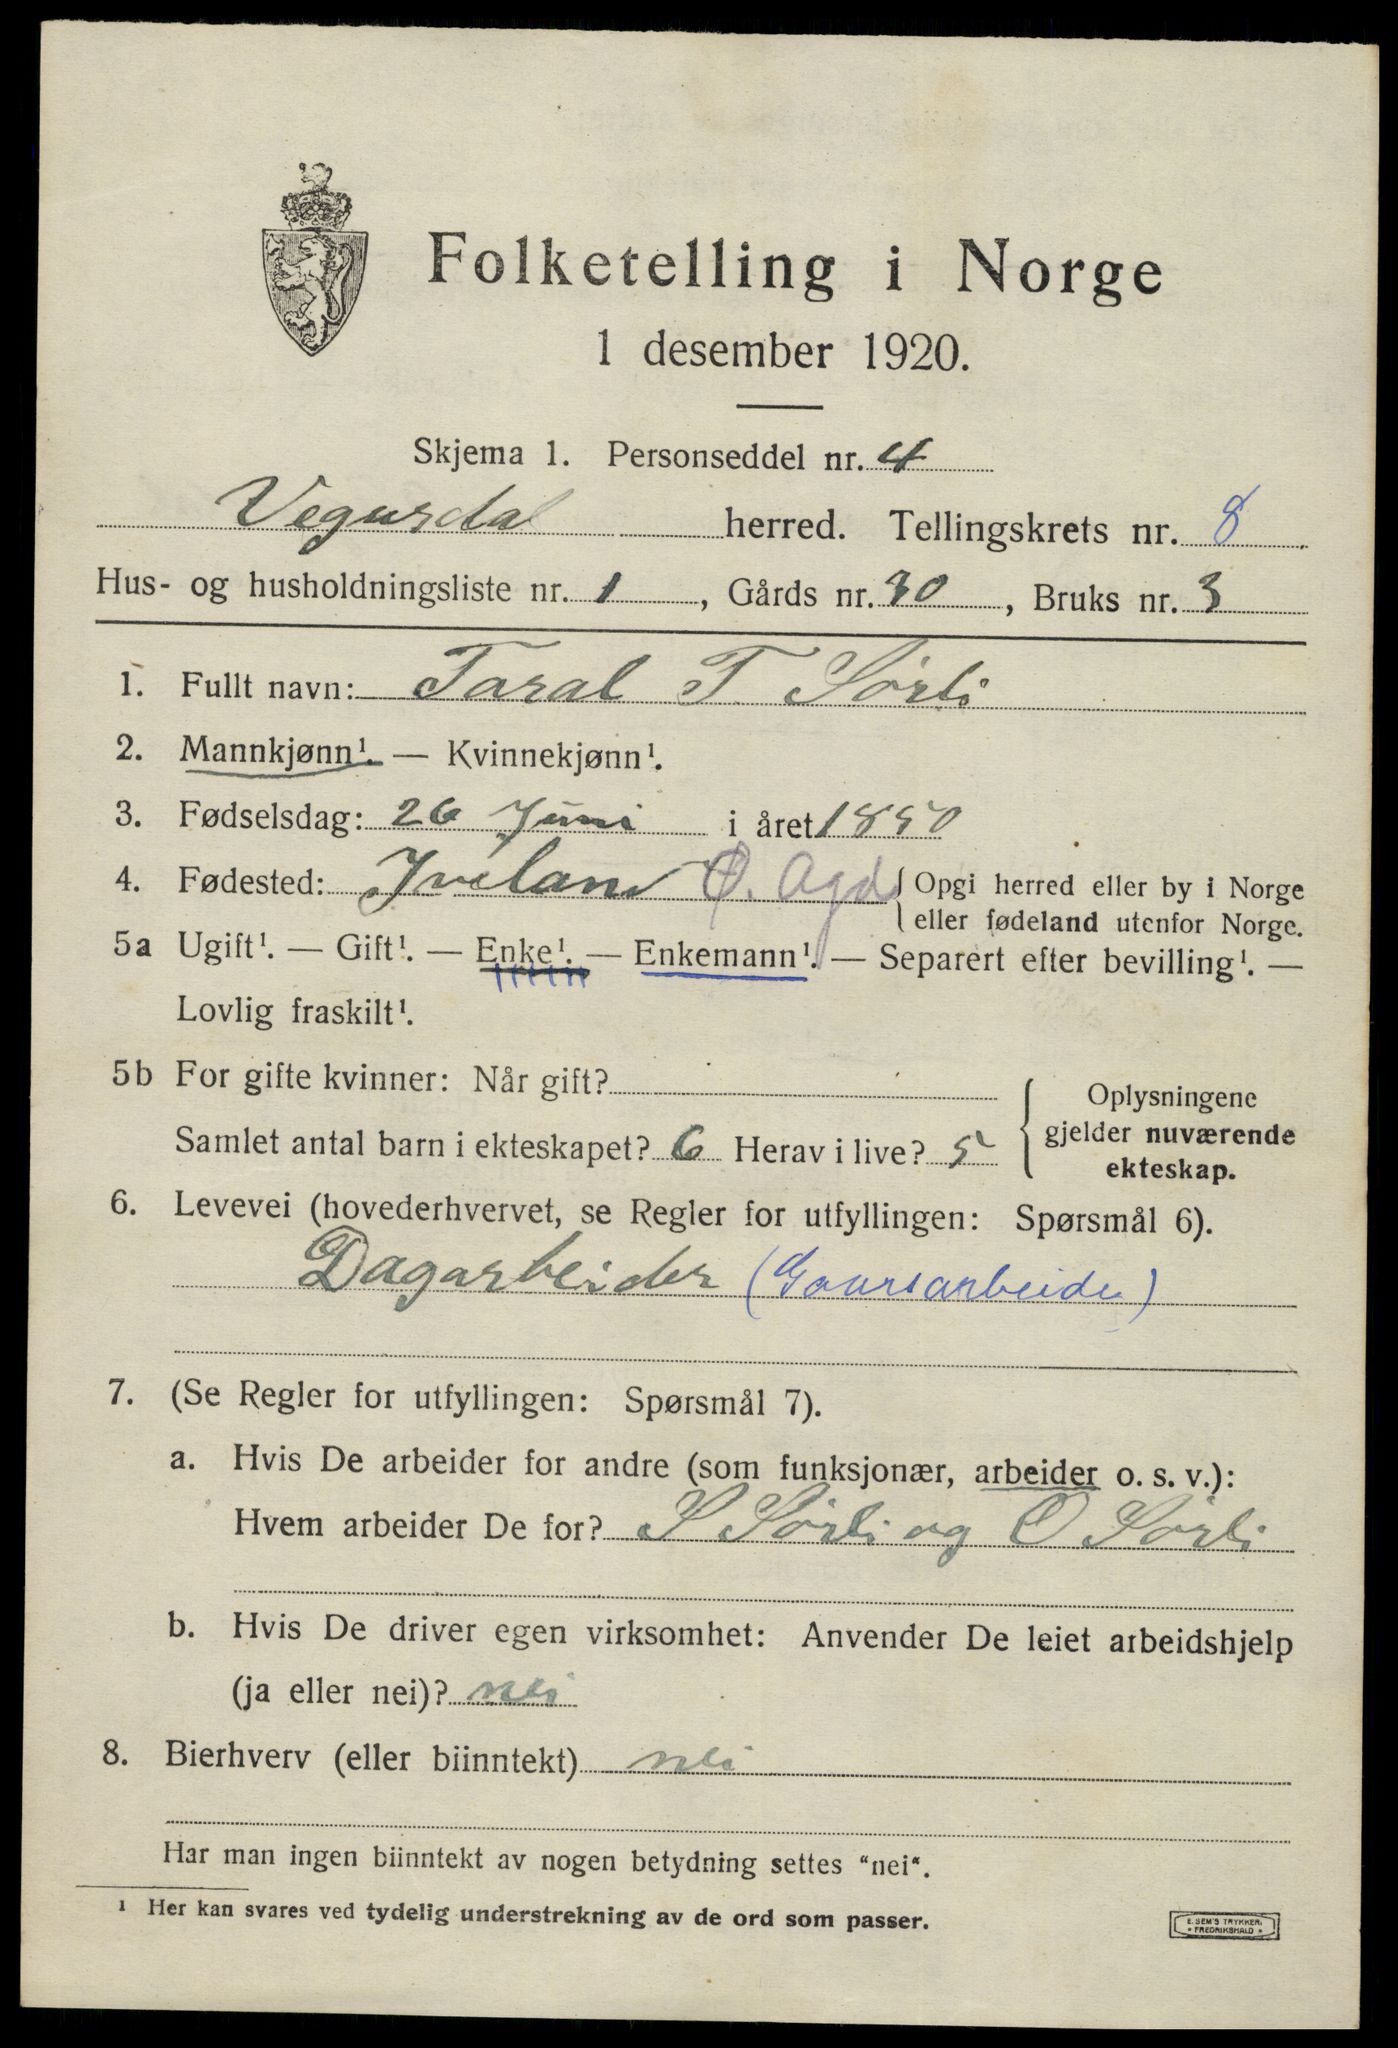 Folketelling i Norge
1 desember 1920.
Skjema 1. Personseddel nr. 4
Vegusdal herred. Tellingskrets nr. 8
Hus- og husholdningsliste nr. 1, Gårds nr. 30, Bruks nr. 3
1. Fullt navn: Taral T Sørli
2. Mannkjønn¹. — Kvinnekjønn¹.
3. Fødselsdag: 26 Juni i året 1850
4. Fødested: Iveland Ø. Agd { Opgi herred eller by i Norge
eller fødeland utenfor Norge.
5a Ugift¹. — Gift¹. — Enke¹. — Enkemann¹. — Separert efter bevilling¹. —
Lovlig fraskilt¹.
5b For gifte kvinner: Når gift?
Samlet antal barn i ekteskapet? 6 Herav i live? 5
Oplysningene
gjelder nuværende
ekteskap.
6. Levevei (hovederhvervet, se Regler for utfyllingen: Spørsmål 6).
Dagarbeider (Gaarsarbeide)
7. (Se Regler for utfyllingen: Spørsmål 7).
a. Hvis De arbeider for andre (som funksjonær, arbeider o. s. v.):
Hvem arbeider De for? S Sørli og O Sørli
b. Hvis De driver egen virksomhet: Anvender De leiet arbeidshjelp
(ja eller nei)? nei
8. Bierhverv (eller biinntekt) nei
Har man ingen biinntekt av nogen betydning settes "nei".
¹ Her kan svares ved tydelig understrekning av de ord som passer.
E. SEM'S TRYKKERI
* FREDRIKSHALD *